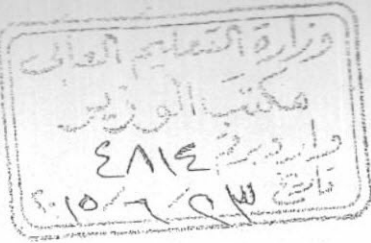 وزارة التعليم العالى
مكتب الوزير
وارد برقم ٤٨١٤
تاريخ ٢٠١٥/٦/٢٣